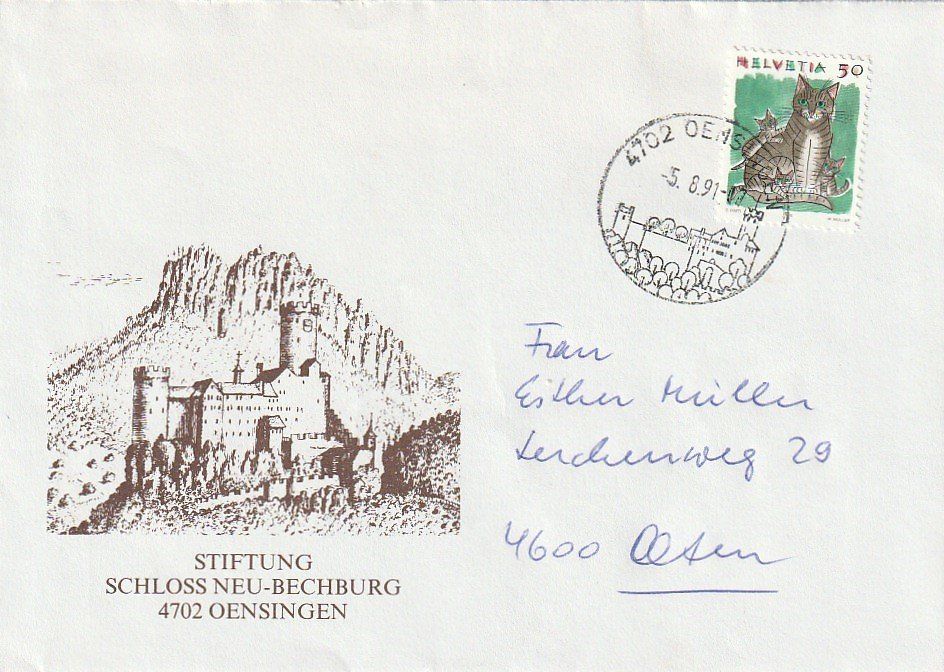 HELVETIA 50
4702 OENSINGEN
-5.8.91-
Frau
Esther Müller
Lerchenweg 29
4600 Olten
STIFTUNG
SCHLOSS NEU-BECHBURG
4702 OENSINGEN